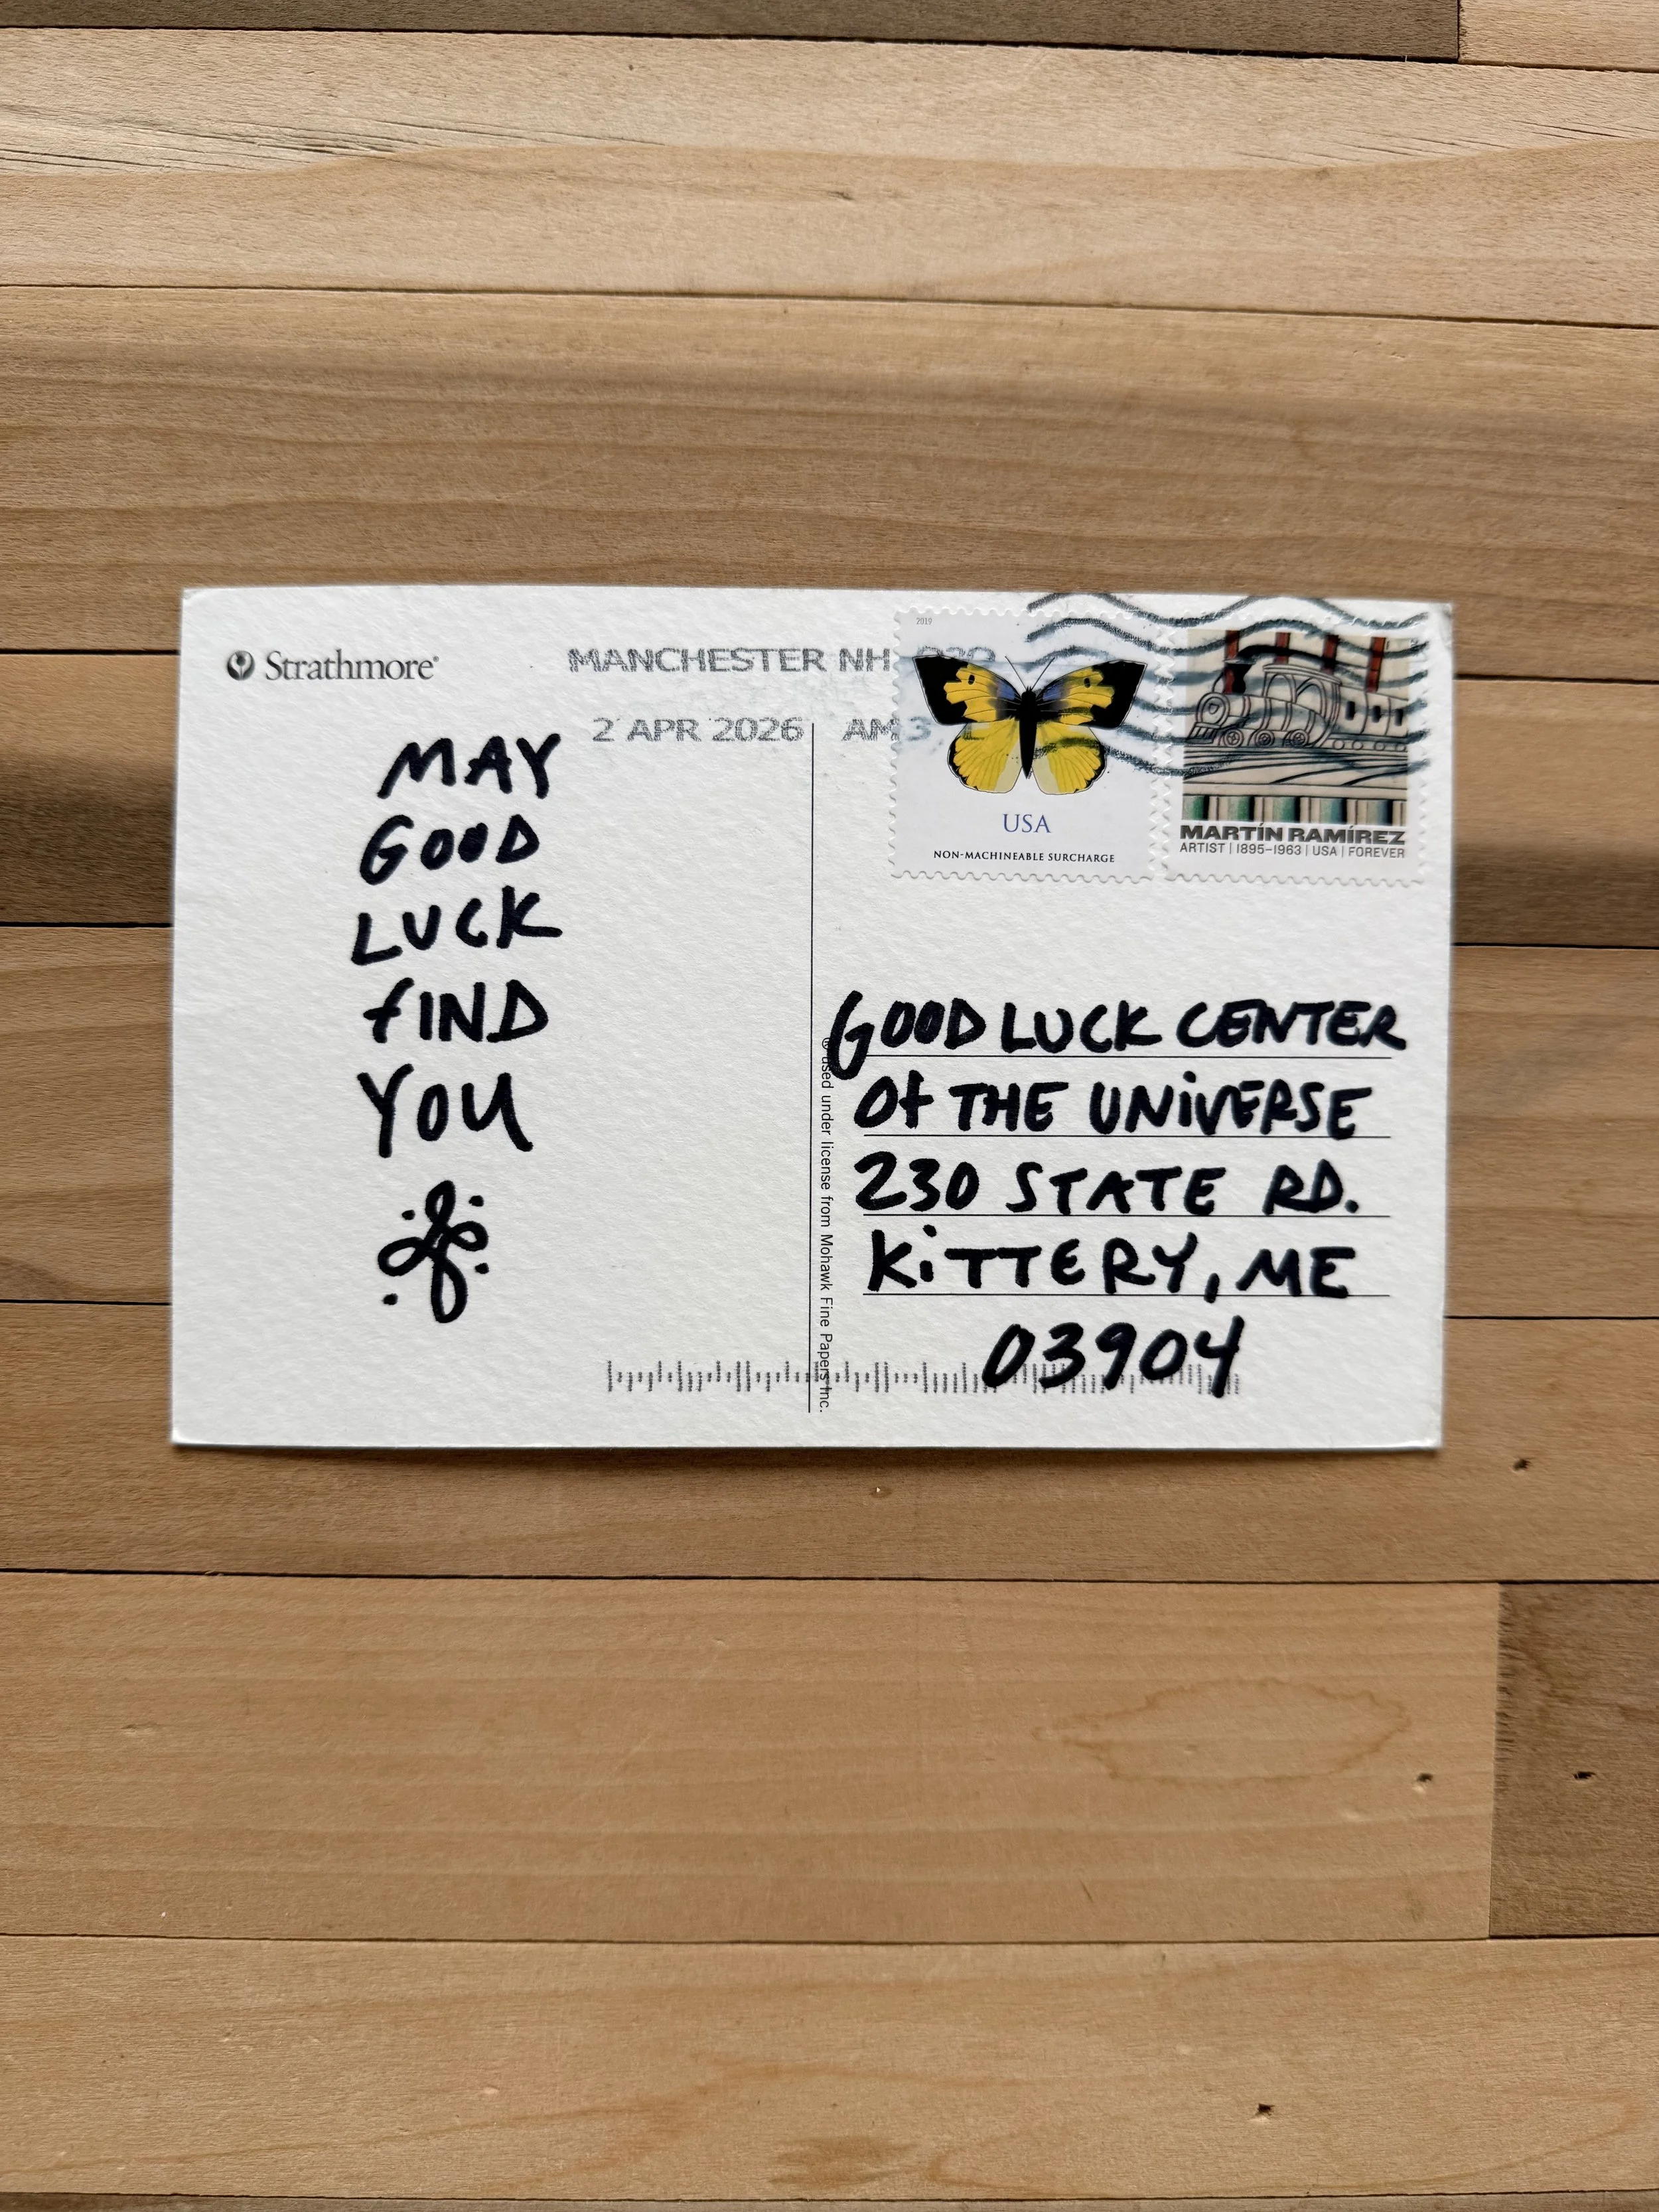 Strathmore®
MANCHESTER NH 030
2 APR 2026 AM 3
MAY
GOOD
LUCK
fIND
YOU
2019
USA
NON-MACHINEABLE SURCHARGE
MARTÍN RAMÍREZ
ARTIST | 1895–1963 | USA | FOREVER
GOOD LUCK CENTER
Of THE UNiVERSE
230 STATE RD.
KiTTERY, ME
03904
® used under license from Mohawk Fine Papers Inc.